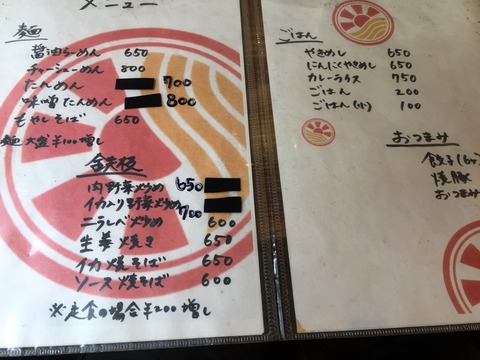 メニュー
麺
醤油らーめん 650
チャーシューめん 800
たんめん 700
味噌たんめん 800
もやしそば 650
麺大盛¥100増し
鉄板
肉野菜炒め 650
イカ入り野菜炒め 700
ニラレバ炒め 600
生姜焼き 650
イカ焼そば 650
ソース焼そば 600
※定食の場合¥200増し
ごはん
やきめし 650
にんにくやきめし 650
カレーライス 750
ごはん 200
ごはん(小) 100
おつまみ
餃子(6ヶ)
焼豚
おつまみ